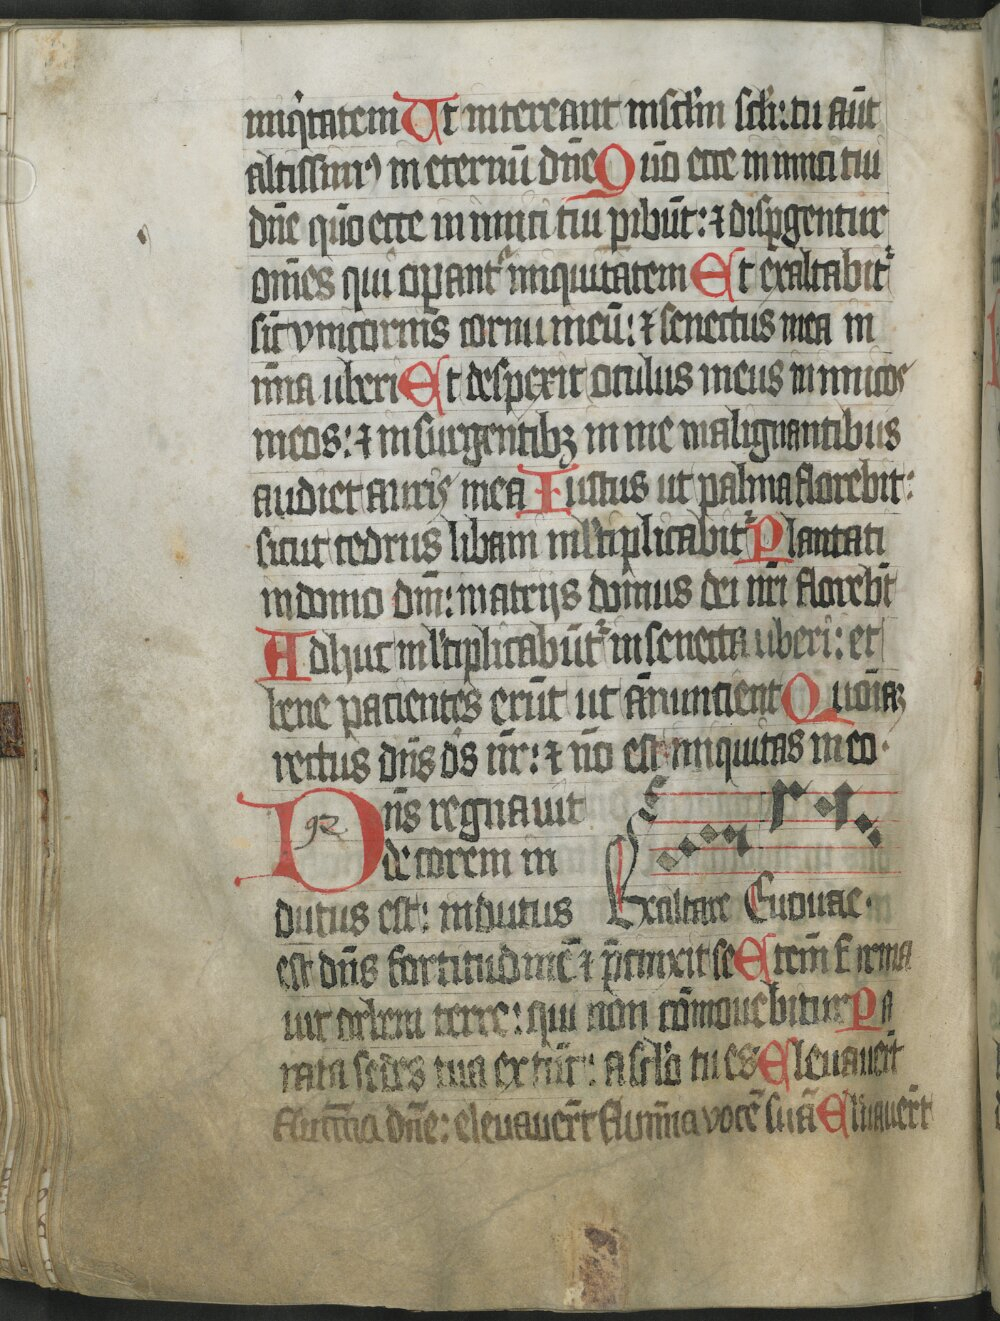 iniq̄tatem Ut intereant in sclm̄ scli: tu aūt
altissimꝰ in eternū dn̄e Quō ecce inimici tui
dn̄e qūo ecce inimici tui ꝑibūt: ⁊ disꝑgentur
om̄es qui oꝑantᷣ iniquitatem Et exaltabitᷣ
sic̄ vnicornis cornu meū: ⁊ senectus mea in
mīa uberi Et despexit oculus meus inimicos
meos: ⁊ insurgentibꝫ in me malignantibus
audiet auris mea Iustus ut palma florebit:
sicut cedrus libani ml̄tiplicabitᷣ Plantati
in domo dn̄i: in atrijs domus dei nr̄i florebt̄
Adhuc ml̄tiplicabūtᷣ in senecta uberi: et
bene pacientes erūt ut ānuncient Quoniaꝫ
rectus dn̄s ds̄ nr̄: ⁊ nō est iniquitas in eo.
Dn̄s regnauit
92
decorem in
dutus est: indutus Exaltare Euouae.
est dn̄s fortitudinē ⁊ p̄cinxit se Etem̄ firma
uit orbem terre: qui non cōmouebitur Pa
rata sedes tua ex tūc: a sclō tu es Eleuauer̄t
flumina dn̄e: eleuauer̄t flumīa vocē suā Eleuauer̄t